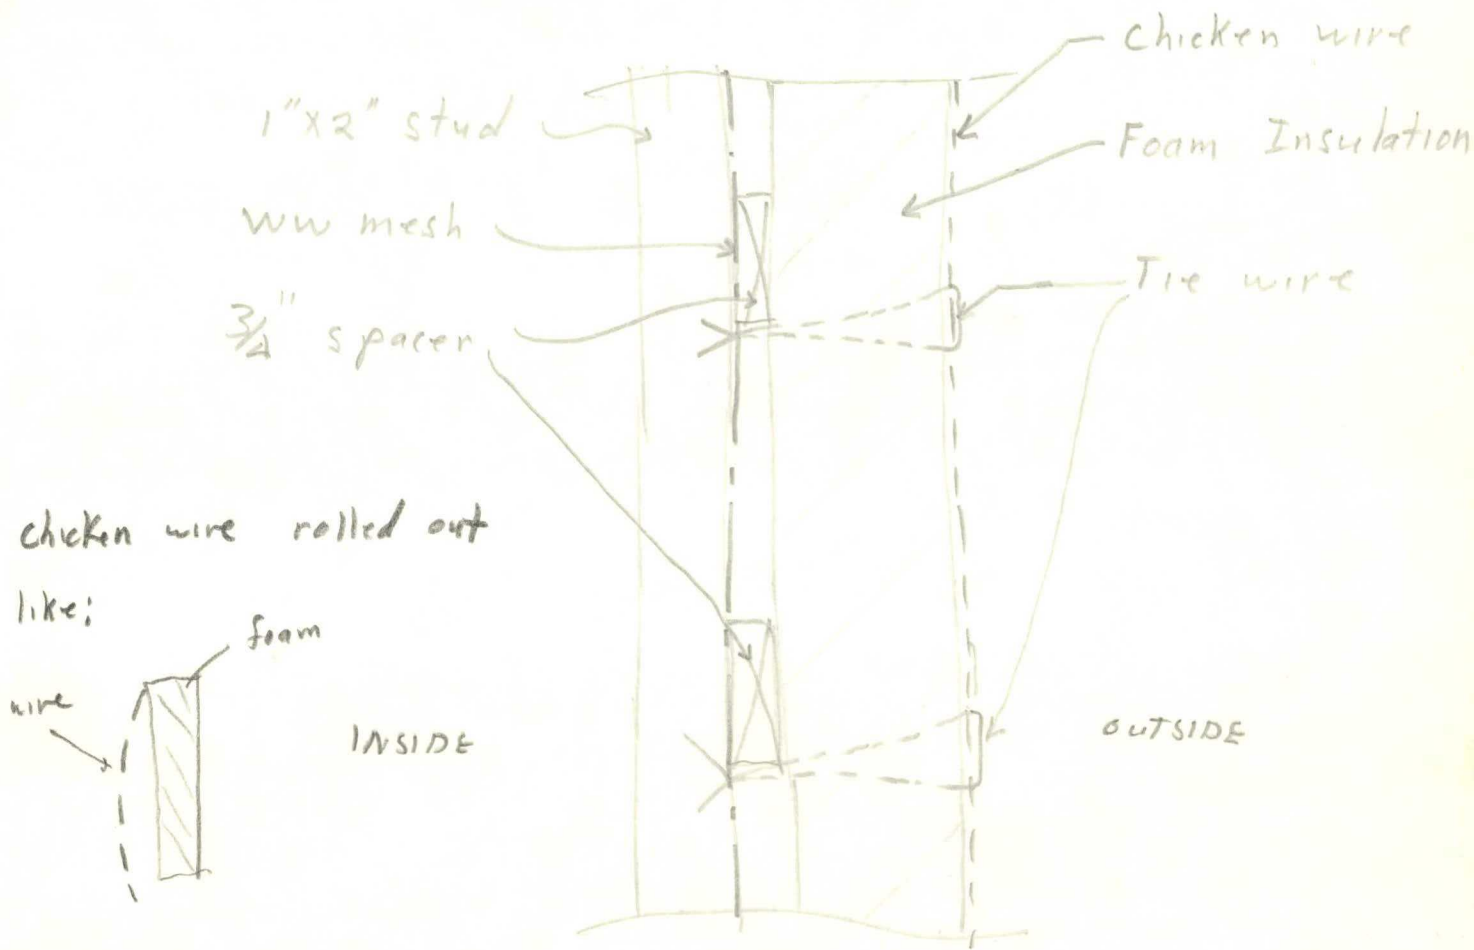 Chicken wire
1" x 2" stud
Foam Insulation
WW mesh
Tie wire
3/4" spacer
chicken wire rolled out
like:
foam
wire
INSIDE
OUTSIDE